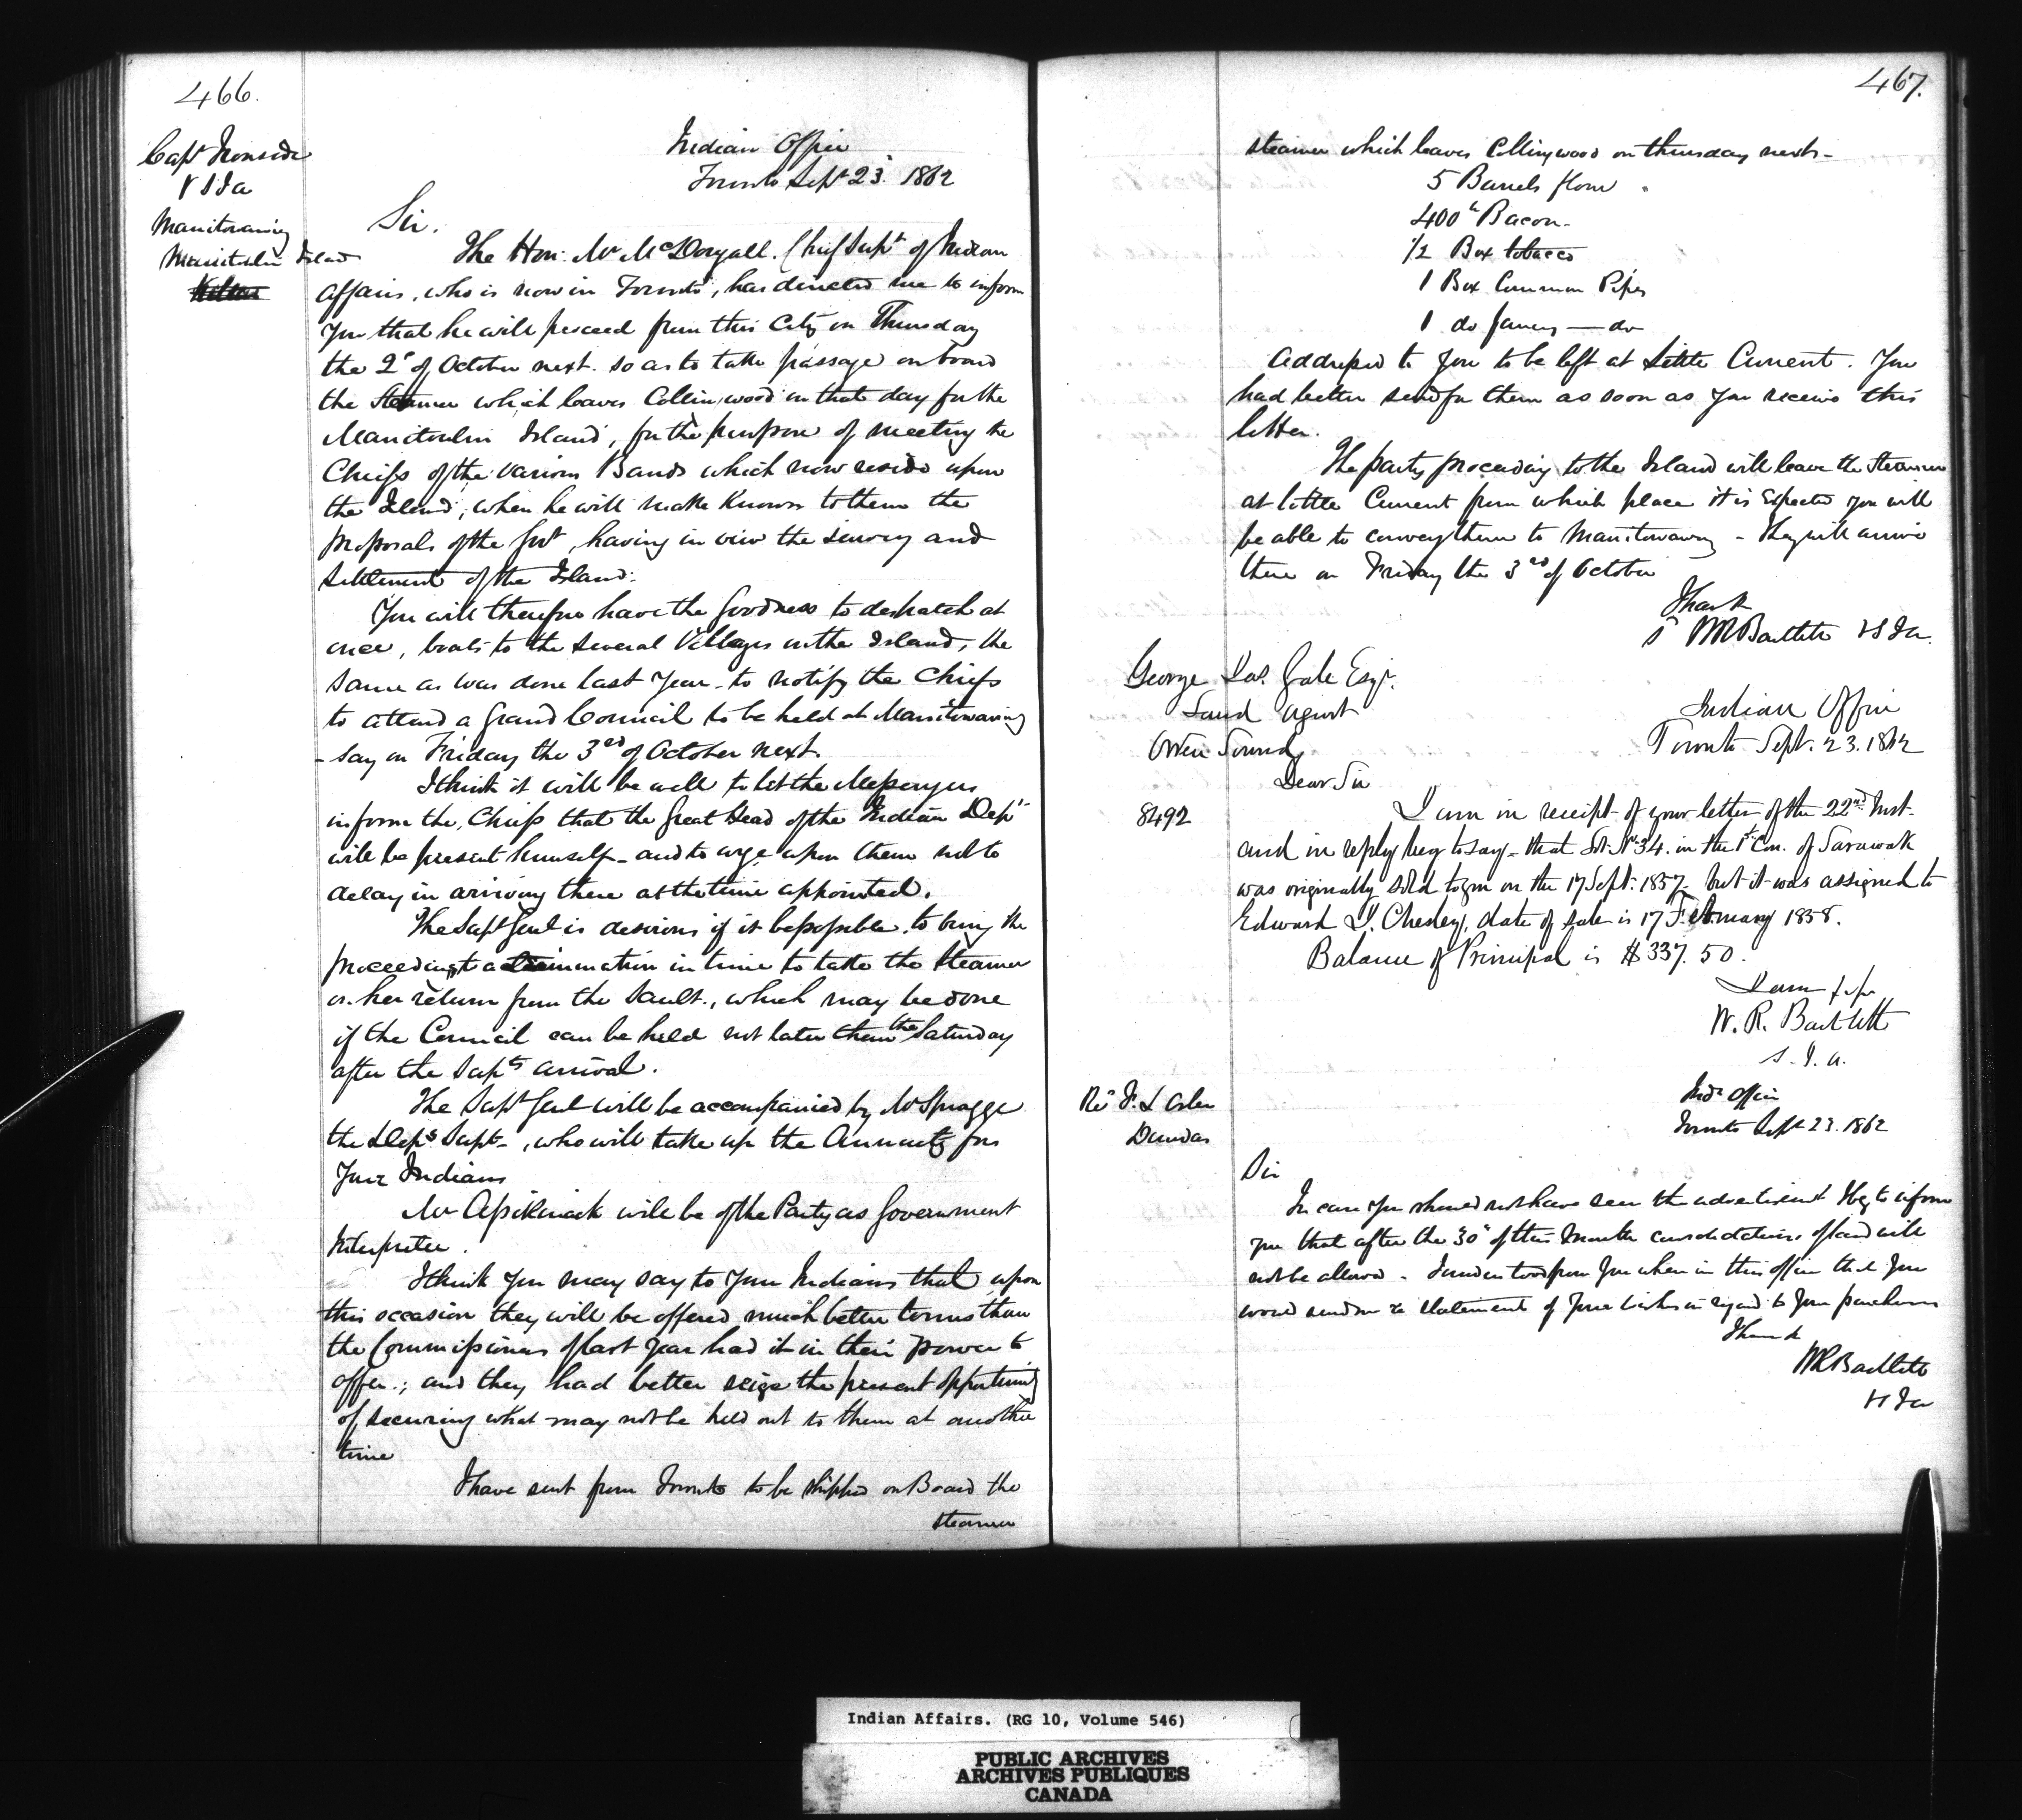 466.
Capt Ironside
V S I a
Manitowaning
Manitoulin Island
Indian Office
Toronto Sept 23d. 1862
Sir.
The Hon: Mr McDougall. Chief Supt of Indian
Affairs, who is now in Toronto, has directed me to inform
you that he will proceed from this City on Thursday
the 2d of October next. so as to take passage on board
the Steamer which leaves Collingwood on that day for the
Manitoulin Island, for the purpose of meeting the
Chiefs of the various Bands which now reside upon
the Island, when he will make known to them the
proposals of the Govt, having in view the survey and
settlement of the Island.
You will therefore have the goodness to despatch at
once, boats to the several Villages on the Island, the
same as was done last year - to notify the Chiefs
to attend a Grand Council to be held at Manitowaning
- say on Friday the 3rd of October next.
I think it will be well to let the Messengers
inform the Chiefs that the Great Head of the Indian Dept
will be present himself - and to urge upon them not to
delay in arriving there at the time appointed.
The Supt Genl is desirous if it be possible, to bring the
proceedings to a termination in time to take the Steamer
on her return from the Sault., which may be done
if the Council can be held not later than the Saturday
after the Supts arrival.
The Supt Genl will be accompanied by Mr Spragge
the Depy Supt -, who will take up the Annuity for
your Indians
Mr Assikinack will be of the Party as Government
Interpreter.
I think you may say to your Indians that upon
this occasion they will be offered much better terms than
the Commissioners of last year had it in their power to
offer.; and they had better seize the present opportunity
of securing what may not be held out to them at another
time
I have sent from Toronto to be shipped on Board the
steamer
467.
steamer which leaves Collingwood on thursday next -
5 Barrels flour
400 lb Bacon -
1/2 Box tobacco
1 Box Common Pipes
1 do fancy — do
addressed to you to be left at Little Current. You
had better send for them as soon as you receive this
letter.
The party proceeding to the Island will leave the Steamer
at Little Current from which place it is expected you will
be able to convey them to Manitowaning - They will arrive
there on Friday the 3rd of October
I have &c
W R Bartlett V S I a.
George Jas. Gale Esqr.
Land Agent
Owen Sound
Indian Office
Toronto Sept. 23. 1862
Dear Sir
8492
I am in receipt of your letter of the 22nd Inst.
and in reply beg to say - that Lot No 34. in the 1st Con. of Sarawak
was originally sold to you on the 17 Sept. 1857 - but it was assigned to
Edward D. Chesley, date of sale is 17 February 1858.
Balance of Principal is $337.50.
I am &c &c
W. R. Bartlett
S. I. A.
Dundas
Indn Office
Toronto Sept 23. 1862
Sir
In case you should not have seen the advertisement I beg to inform
you that after the 30th of this Month consolidations of land will
not be allowed - I understood from you when in this office that you
would send me a statement of your wishes in regard to your purchases
I have &c
W R Bartlett
V S I a
Indian Affairs. (RG 10, Volume 546)
PUBLIC ARCHIVES
ARCHIVES PUBLIQUES
CANADA